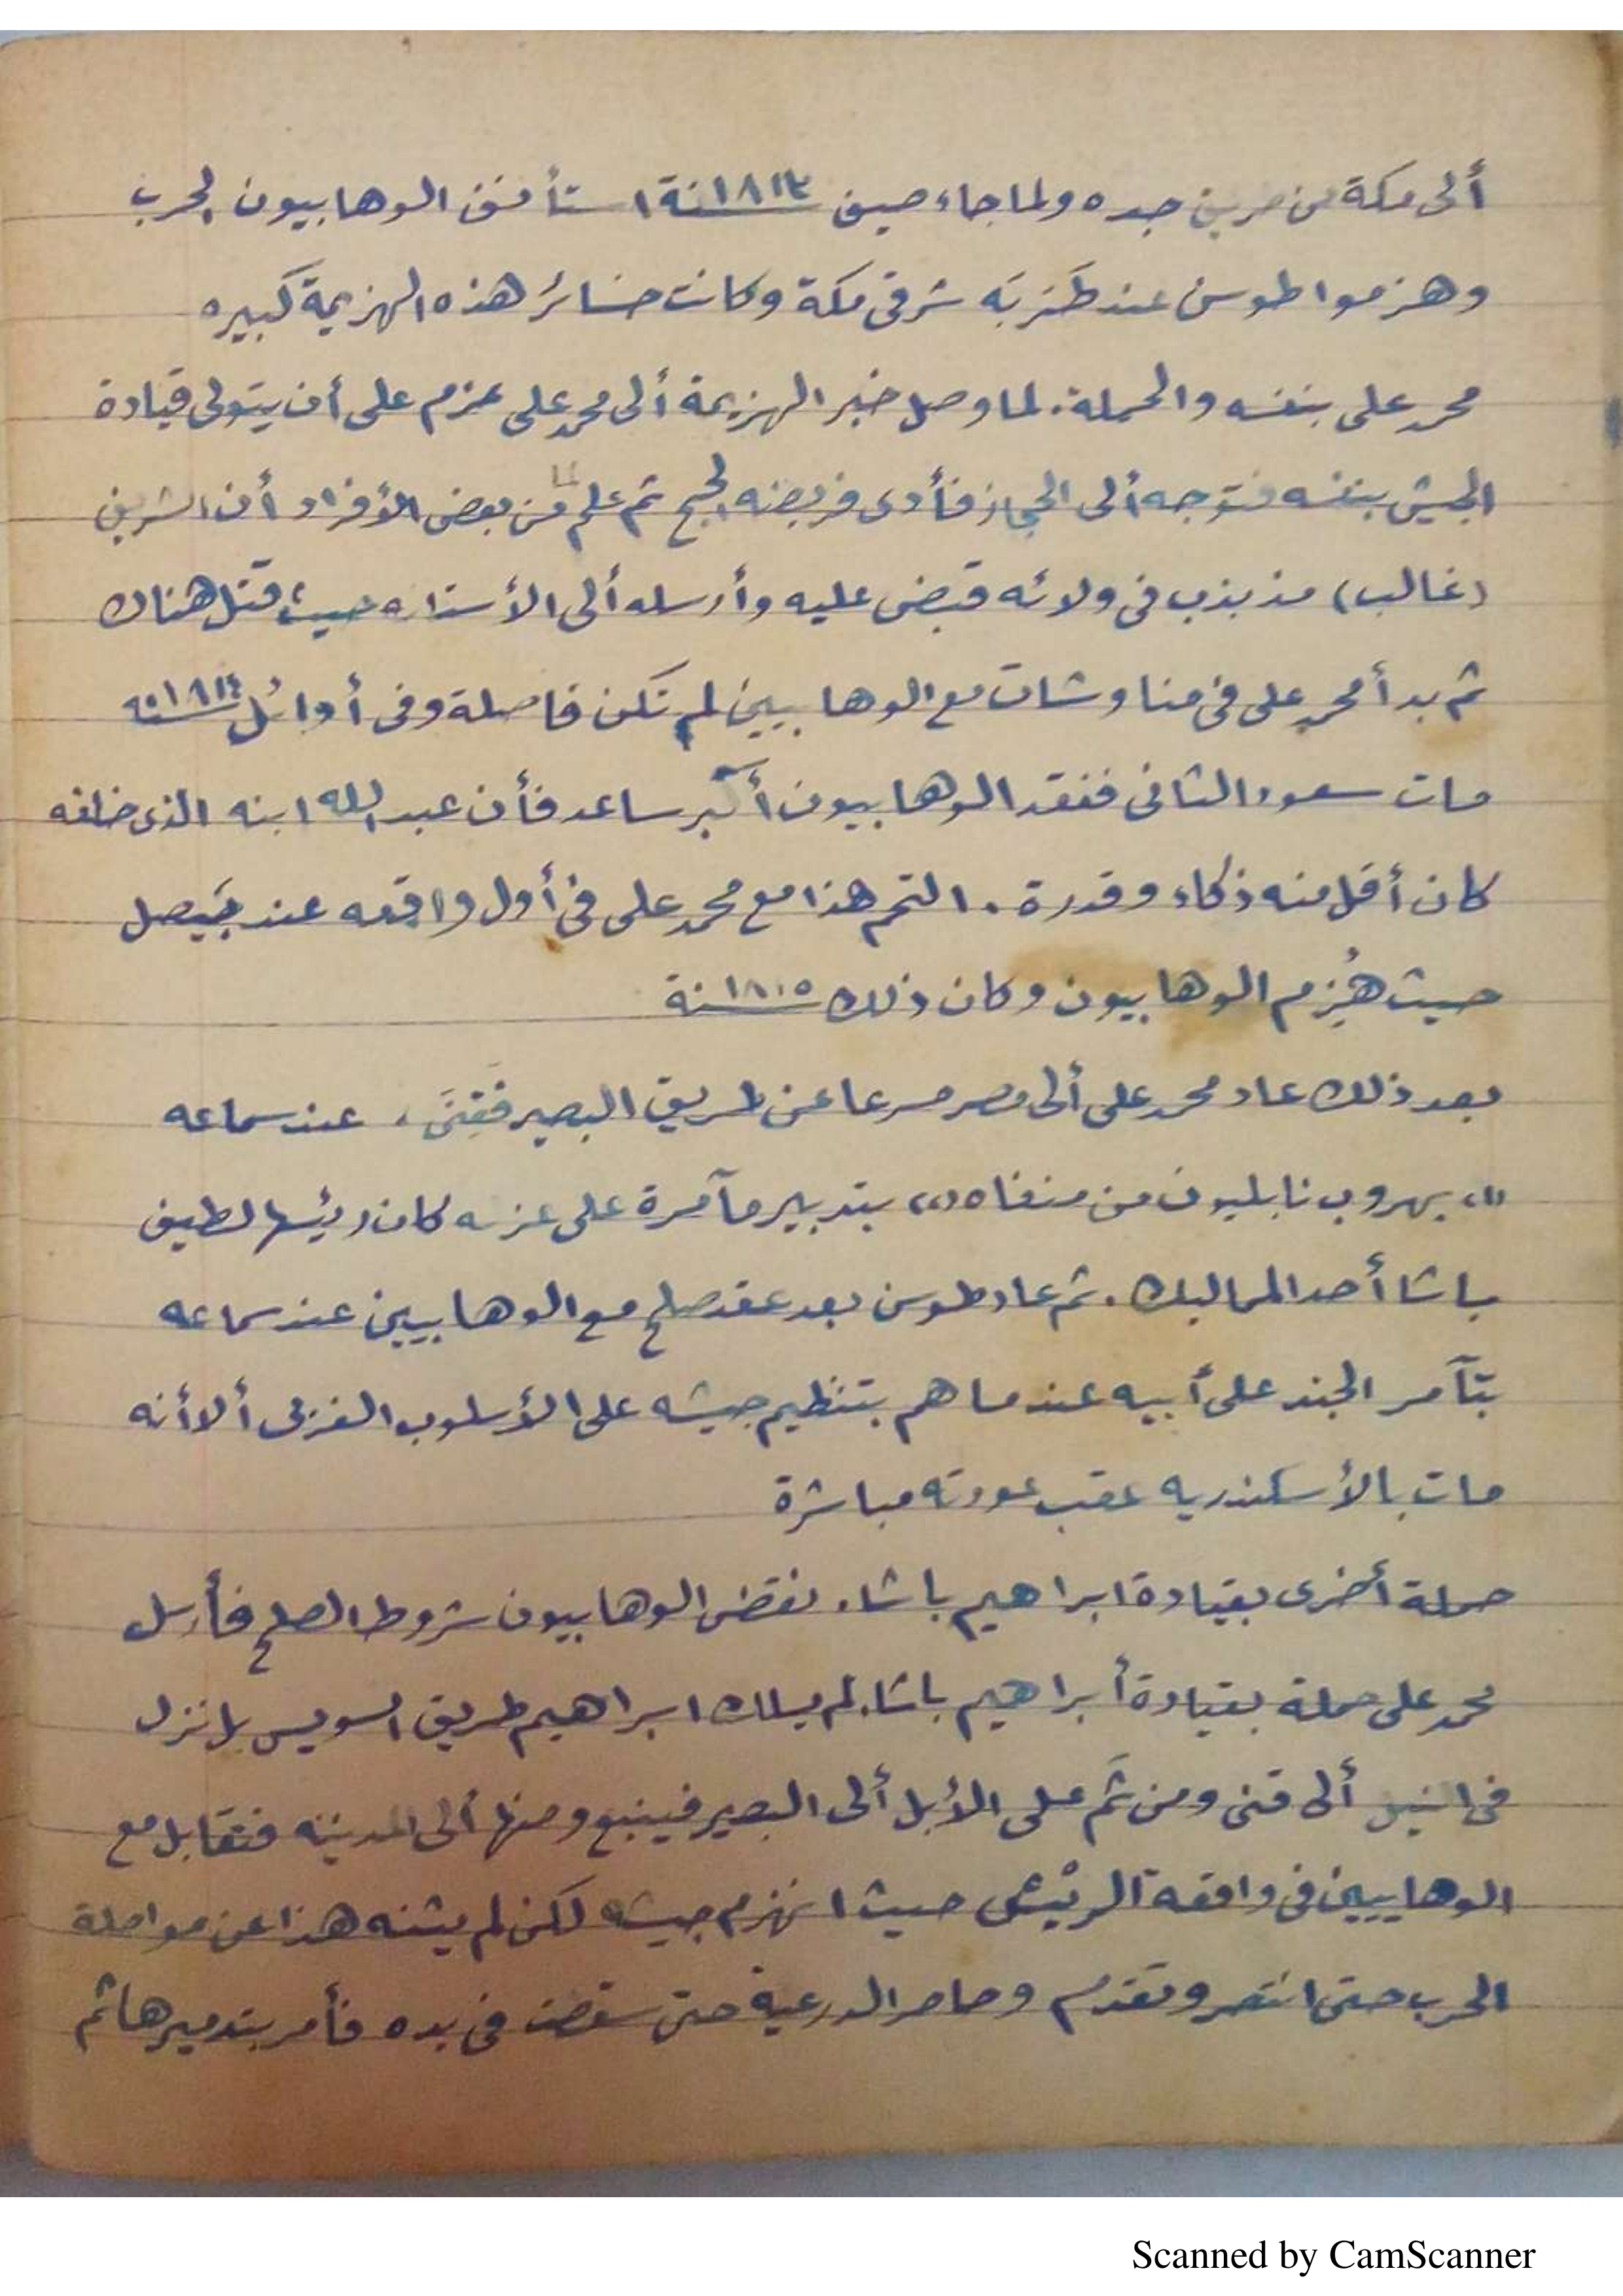 ألى مكة عن طريق جده ولما جاء صيف سنة ١٨١٣ استأنف الوهابيون الحرب
وهزموا طوسن عند طَرَبَه شرقى مكة وكانت خسائر هذه الهزيمة كبيره
محمد على بنفسه والحملة. لما وصل خبر الهزيمة ألى محمد على عزم على أن يتولى قيادة
الجيش بنفسه فتوجه ألى الحجاز فأدى فريضه الحج ثم علم من بعض الأفراد أن الشريف
(غالب) مذبذب فى ولائه قبض عليه وأرسله ألى الأستانه حيث قتل هناك
ثم بدأ محمد على فى مناوشات مع الوهابيين لم تكن فاصلة وفى أوائل سنه ١٨١٤
مات سعود الثانى ففقد الوهابيون أكبر ساعد فأن عبد الله ابنه الذى خلفه
كان أقل منه ذكاء وقدرة. التحم هذا مع محمد على فى أول واقعه عند بَيصل
حيث هُزم الوهابيون وكان ذلك سنة ١٨١٥
بعد ذلك عاد محمد على ألى مصر مسرعا عن طريق البصير فقنَى، عند سماعه
(١) بهروب نابليون من منفاه (٢) بتدبير مآمرة على عزله كان رئيسها لطيف
باشا أحد المماليك. ثم عاد طوسن بعد عقد صلح مع الوهابيين عند سماعه
بتآمر الجند على أبيه عندما هم بتنظيم جيشه على الأسلوب الغربى ألا أنه
مات بالأسكندريه عقب عودته مباشرة
حملة أخرى بقيادة ابراهيم باشا. نقض الوهابيون شروط الصلح فأرسل
محمد على حملة بقيادة أبراهيم باشا. لم يسلك ابراهيم طريق السويس بل نزل
فى النيل ألى قنى ومن ثَم على الأبل ألى البصير فينبع ومنها ألى المدينه فتقابل مع
الوهابيين فى واقعة الريَش حيث انهزم جيشه لكن لم يثنه هذا عن مواصلة
الحرب حتى انتصر وتقدم وحاصر الدرعية حتى سقطت فى يده فأمر بتدميرها ثم
Scanned by CamScanner